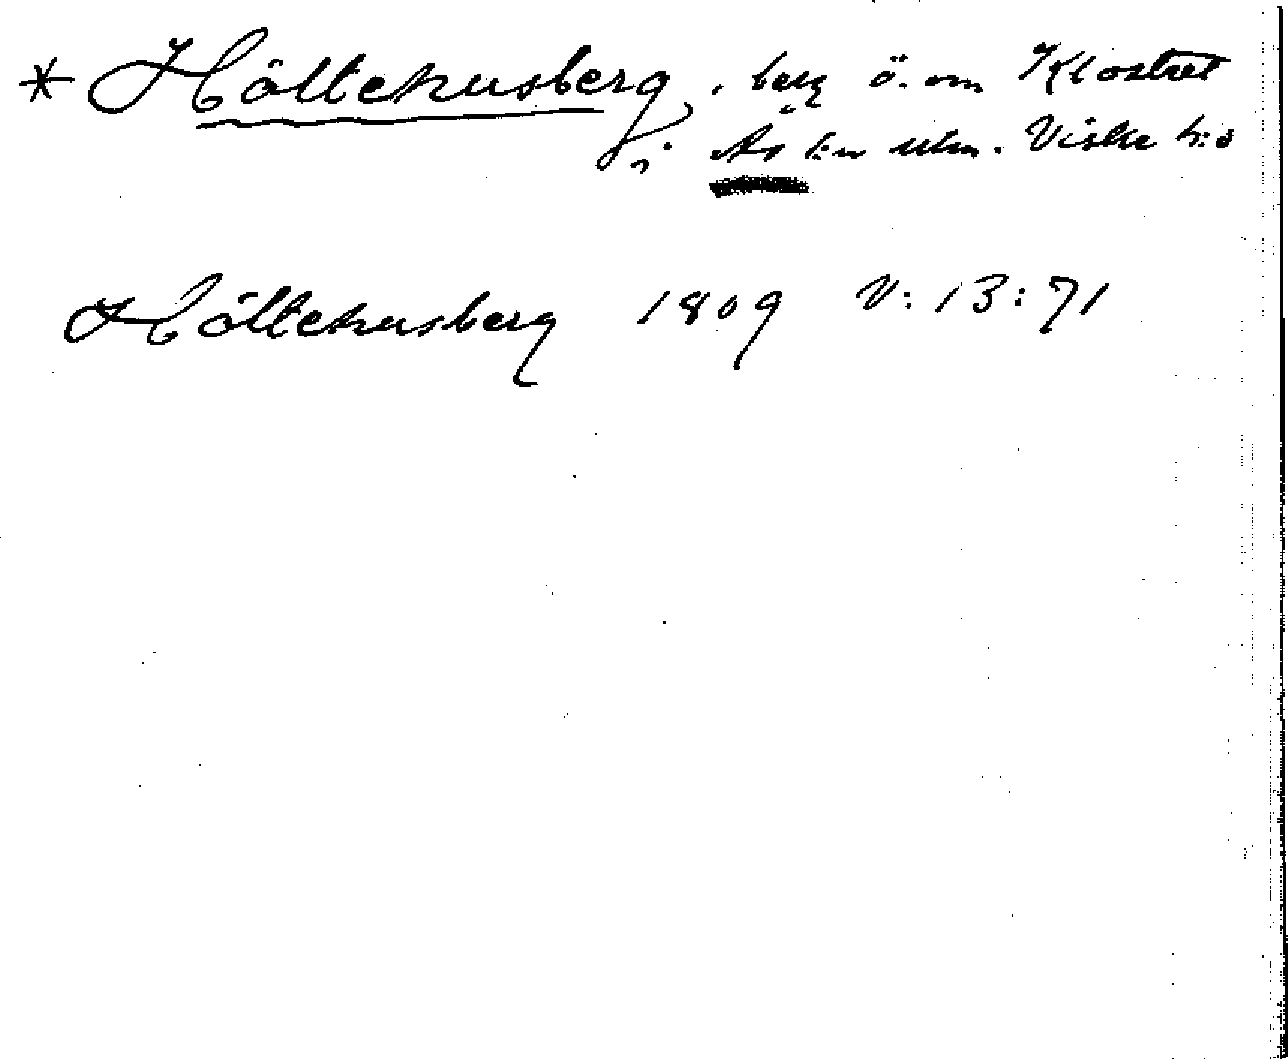 * Höltehusberg, berg ö. om Klostret
i Ås sn utm. Viske h:d
Höltehusberg 1809 V: 13:71